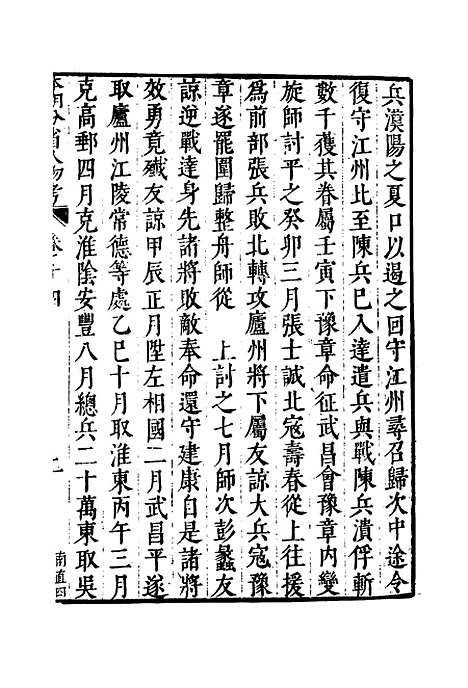 兵漢陽之夏口以遏之回守江州尋召歸次中途令
復守江州比至陳兵已入達遣兵與戰陳兵潰俘斬
數千獲其眷屬壬寅下豫章命征武昌會豫章內變
旋師討平之癸卯三月張士誠北寇壽春從上往援
為前部張兵敗北轉攻廬州將下屬友諒大兵寇豫
章遂罷圍歸整舟師從　上討之七月師次彭蠡友
諒逆戰達身先諸將敗敵奉命還守建康自是諸將
效勇竟殲友諒甲辰正月陞左相國二月武昌平遂
取廬州江陵常德等處乙巳十月取淮東丙午三月
克高郵四月克淮陰安豐八月總兵二十萬東取吳
本朝分省人物考
卷十四
南直四